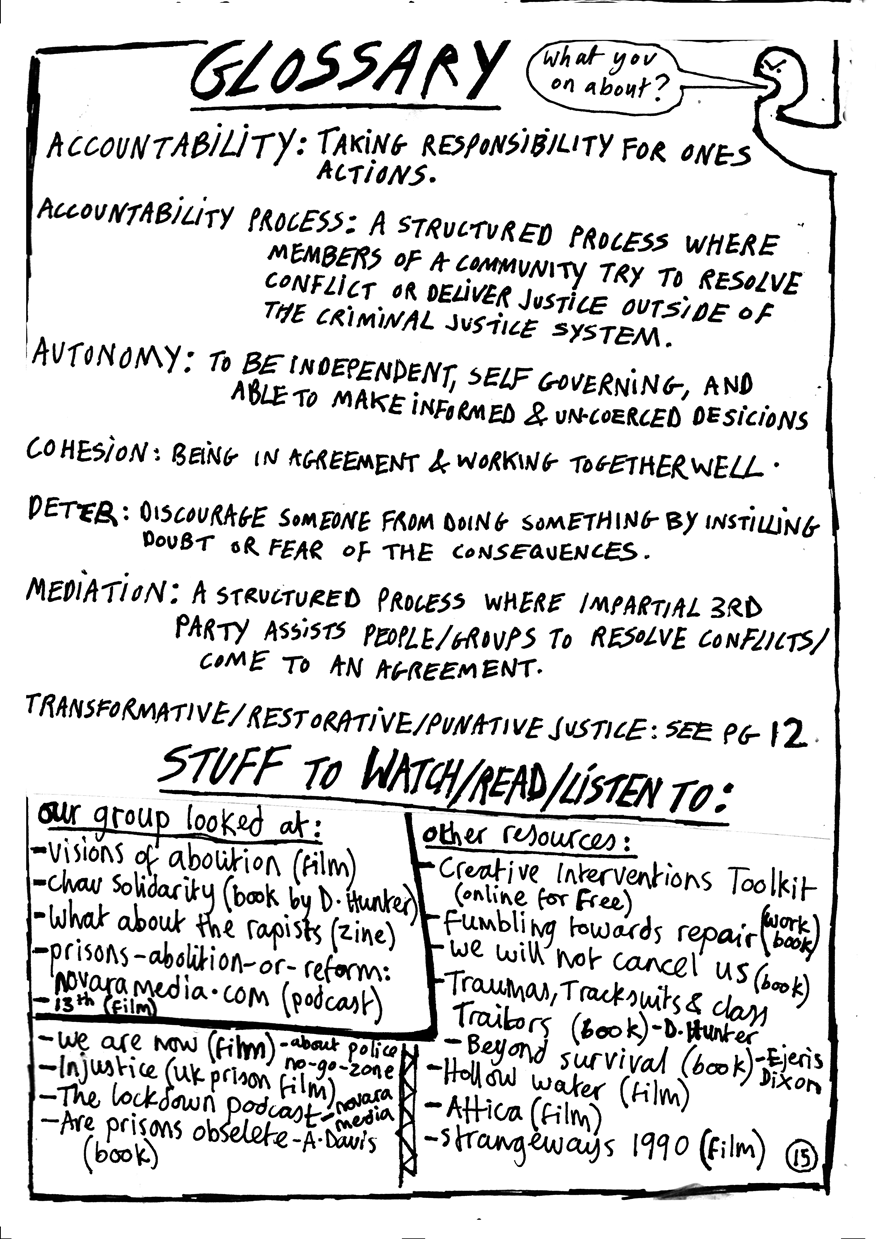 GLOSSARY
What you
on about?
ACCOUNTABILITY: TAKING RESPONSIBILITY FOR ONES
ACTIONS.
ACCOUNTABILITY PROCESS: A STRUCTURED PROCESS WHERE
MEMBERS OF A COMMUNITY TRY TO RESOLVE
CONFLICT OR DELIVER JUSTICE OUTSIDE OF
THE CRIMINAL JUSTICE SYSTEM.
AUTONOMY: TO BE INDEPENDENT, SELF GOVERNING, AND
ABLE TO MAKE INFORMED & UN-COERCED DESICIONS
COHESION: BEING IN AGREEMENT & WORKING TOGETHER WELL.
DETER: DISCOURAGE SOMEONE FROM DOING SOMETHING BY INSTILLING
DOUBT OR FEAR OF THE CONSEQUENCES.
MEDIATION: A STRUCTURED PROCESS WHERE IMPARTIAL 3RD
PARTY ASSISTS PEOPLE/GROUPS TO RESOLVE CONFLICTS/
COME TO AN AGREEMENT.
TRANSFORMATIVE/RESTORATIVE/PUNATIVE JUSTICE: SEE PG 12.
STUFF TO WATCH/READ/LISTEN TO:
our group looked at:
-Visions of abolition (film)
-Chav Solidarity (book by D. Hunter)
-What about the rapists (zine)
-prisons-abolition-or-reform:
novaramedia.com (podcast)
-13th (film)
-We are now (film) -about police
no-go-zone
-Injustice (UK prison film)
-The lockdown podcast -novara
media
-Are prisons obselete -A. Davis
(book)
other resources:
-Creative Interventions Toolkit
(online for free)
-Fumbling towards repair (work
book)
-we will not cancel us (book)
-Traumas, Tracksuits & class
Traitors (book) -D. Hunter
-Beyond survival (book) -Ejeris
Dixon
-Hollow water (film)
-Attica (film)
-Strangeways 1990 (film)
15